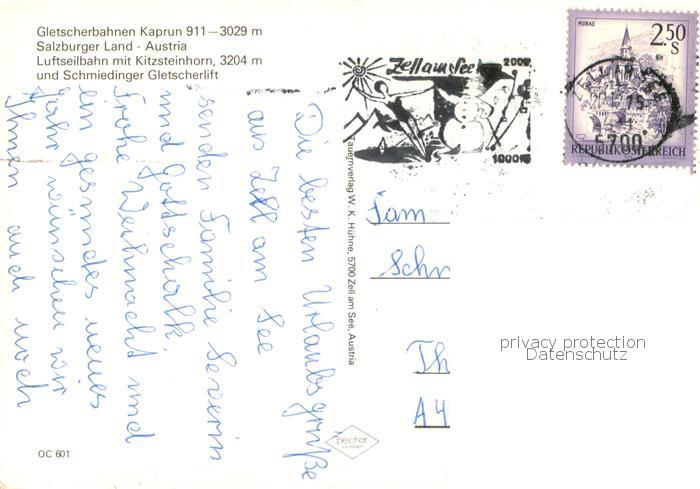 Gletscherbahnen Kaprun 911—3029 m
Salzburger Land - Austria
Luftseilbahn mit Kitzsteinhorn, 3204 m
und Schmiedinger Gletscherlift
Die besten Urlaubsgrüße
aus Zell am See
senden Familie Severin
und Gottschalk.
Frohe Weihnacht und
ein gesundes neues
Jahr wünschen wir
Ihnen auch noch
Tauernverlag W. K. Hühne, 5700 Zell am See, Austria
Zell am See
2000
1000
MURAU
2.50
S
REPUBLIK ÖSTERREICH
75
5700
Fam
Schr
Th
A4
privacy protection
Datenschutz
peichar
OC 601